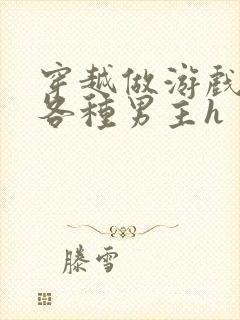 穿越做游戲
各種男主h
滕雪